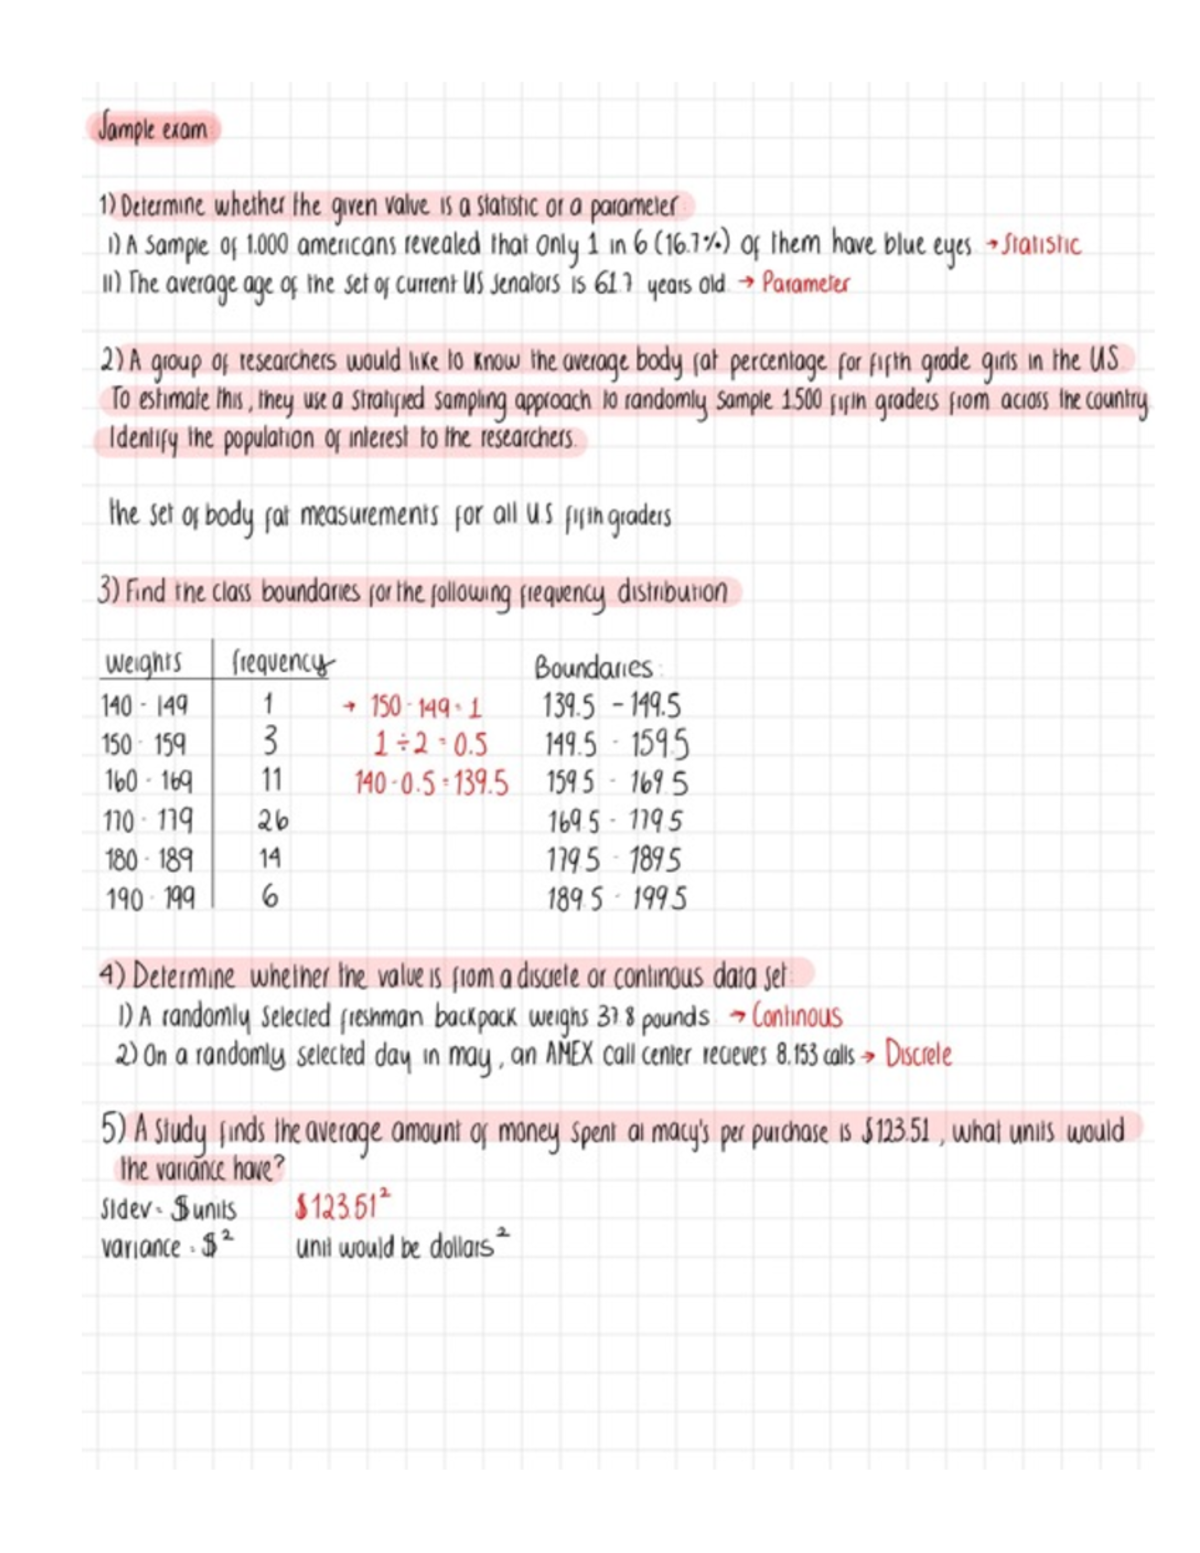 Sample exam
1) Determine whether the given value is a statistic or a parameter
i) A sample of 1.000 americans revealed that only 1 in 6 (16.7%) of them have blue eyes. → Statistic
ii) The average age of the set of current US senators is 61.7 years old. → Parameter
2) A group of researchers would like to know the average body fat percentage for fifth grade girls in the US.
To estimate this, they use a stratified sampling approach to randomly sample 1.500 fifth graders from across the country
Identify the population of interest to the researchers.
the set of body fat measurements for all U.S fifth graders
3) Find the class boundaries for the following frequency distribution
weights frequency Boundaries:
140 - 149 1 → 150 - 149 = 1 139.5 - 149.5
150 - 159 3 1 ÷ 2 = 0.5 149.5 - 159.5
160 - 169 11 140 - 0.5 = 139.5 159.5 - 169.5
170 - 179 26 169.5 - 179.5
180 - 189 14 179.5 - 189.5
190 - 199 6 189.5 - 199.5
4) Determine whether the value is from a discrete or continous data set:
1) A randomly selected freshman backpack weighs 37.8 pounds → Continous
2) On a randomly selected day in may, an AMEX call center recieves 8.153 calls → Discrete
5) A study finds the average amount of money spent at macy's per purchase is $123.51, what units would
the variance have?
Stdev = $ units $123.51²
variance = $² unit would be dollars²